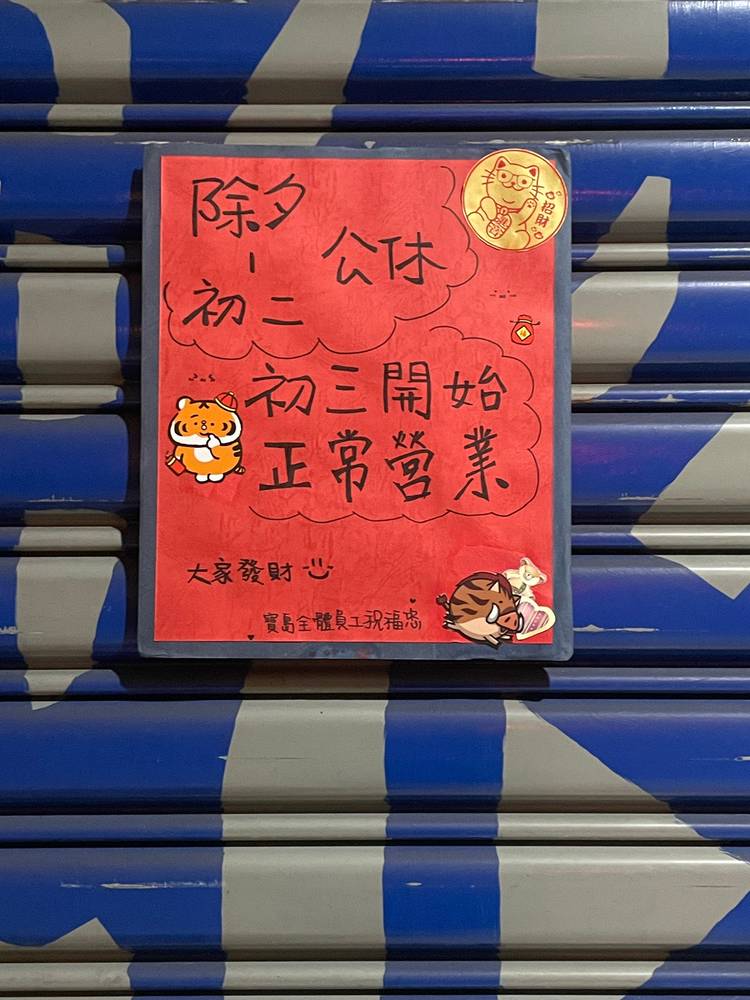 除夕
|
初二
公休
招財
初三開始
正常營業
大家發財
寶島全體員工祝福您